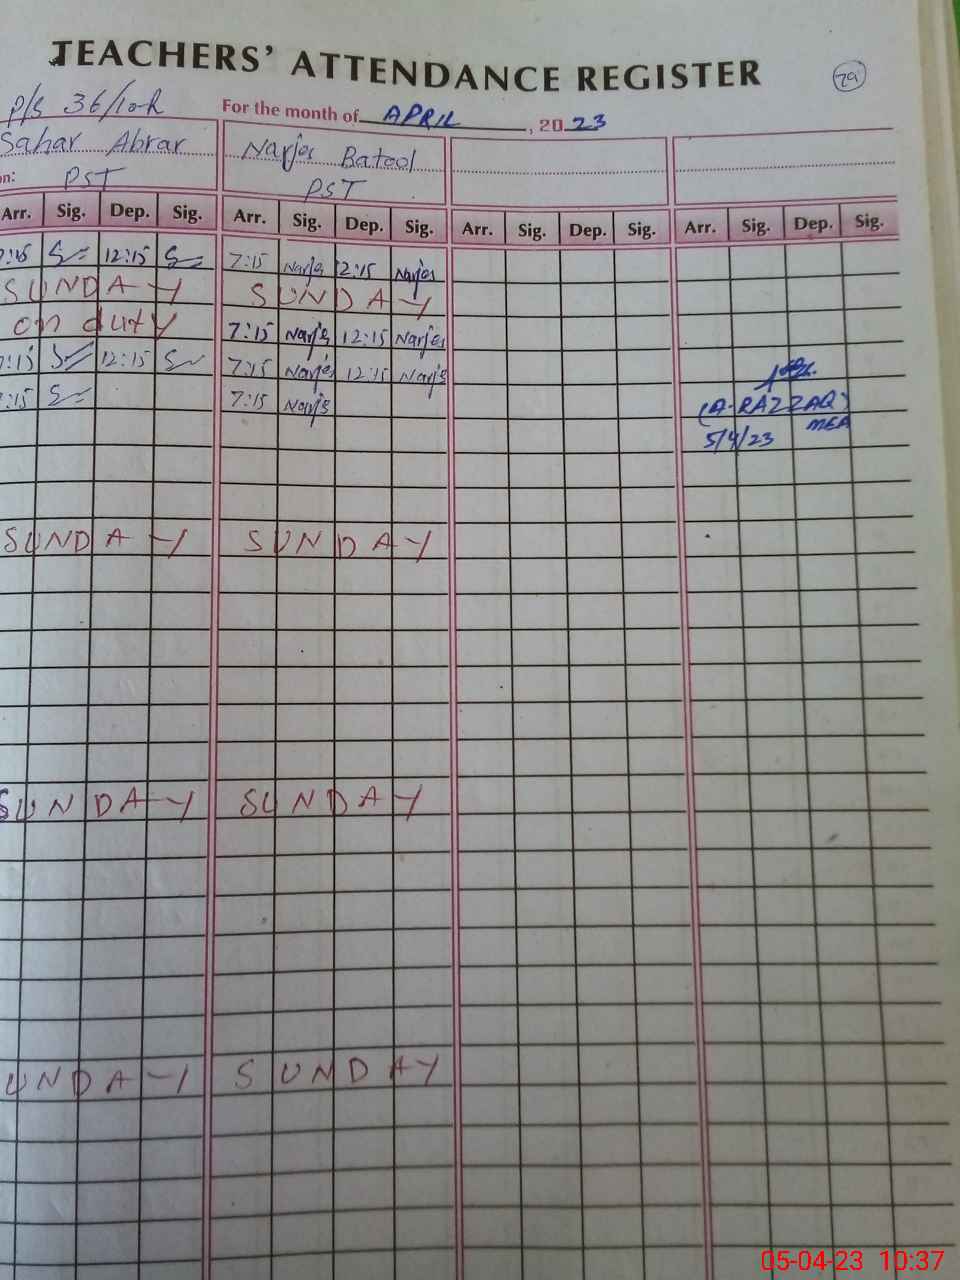 TEACHERS' ATTENDANCE REGISTER
29
P/S 36/10-R
For the month of APRIL, 2023
Sahar Abrar Narjes Batool
on: PST PST
Arr. Sig. Dep. Sig. Arr. Sig. Dep. Sig. Arr. Sig. Dep. Sig. Arr. Sig. Dep. Sig.
7:15 12:15 7:15 Narjes 12:15 Narjes
SUNDAY SUNDAY
on duty 7:15 Narjes 12:15 Narjes
7:15 12:15 7:15 Narjes 12:15 Narjes
7:15 7:15 Narjes
(A-RAZZAQ)
MEA
5/4/23
SUNDAY SUNDAY
SUNDAY SUNDAY
UNDAY SUNDAY
05-04-23 10:37